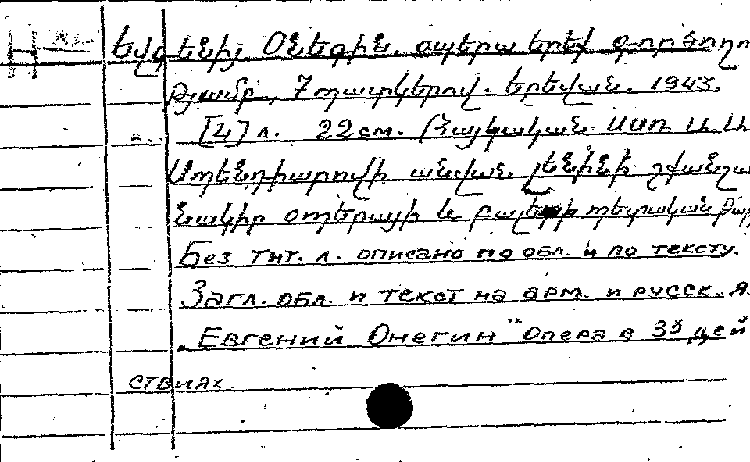 Եվգենիյ Օնեգին. օպերա երեք գործողու
թյամբ, 7 պատկերով. Երեվան. 1943.
[4] л. 22 см. (Հայկական ՍՍՌ Ա. Ա.
Սպենդիարովի անվան. Լենինի շքանշա
նակիր օպերայի և բալետի պետական թա
Без тит. л. описано по обл. и по тексту.
Загл. обл. и текст на арм. и русск. я.
„Евгений Онегин" опера в 3х дей
ствиях.